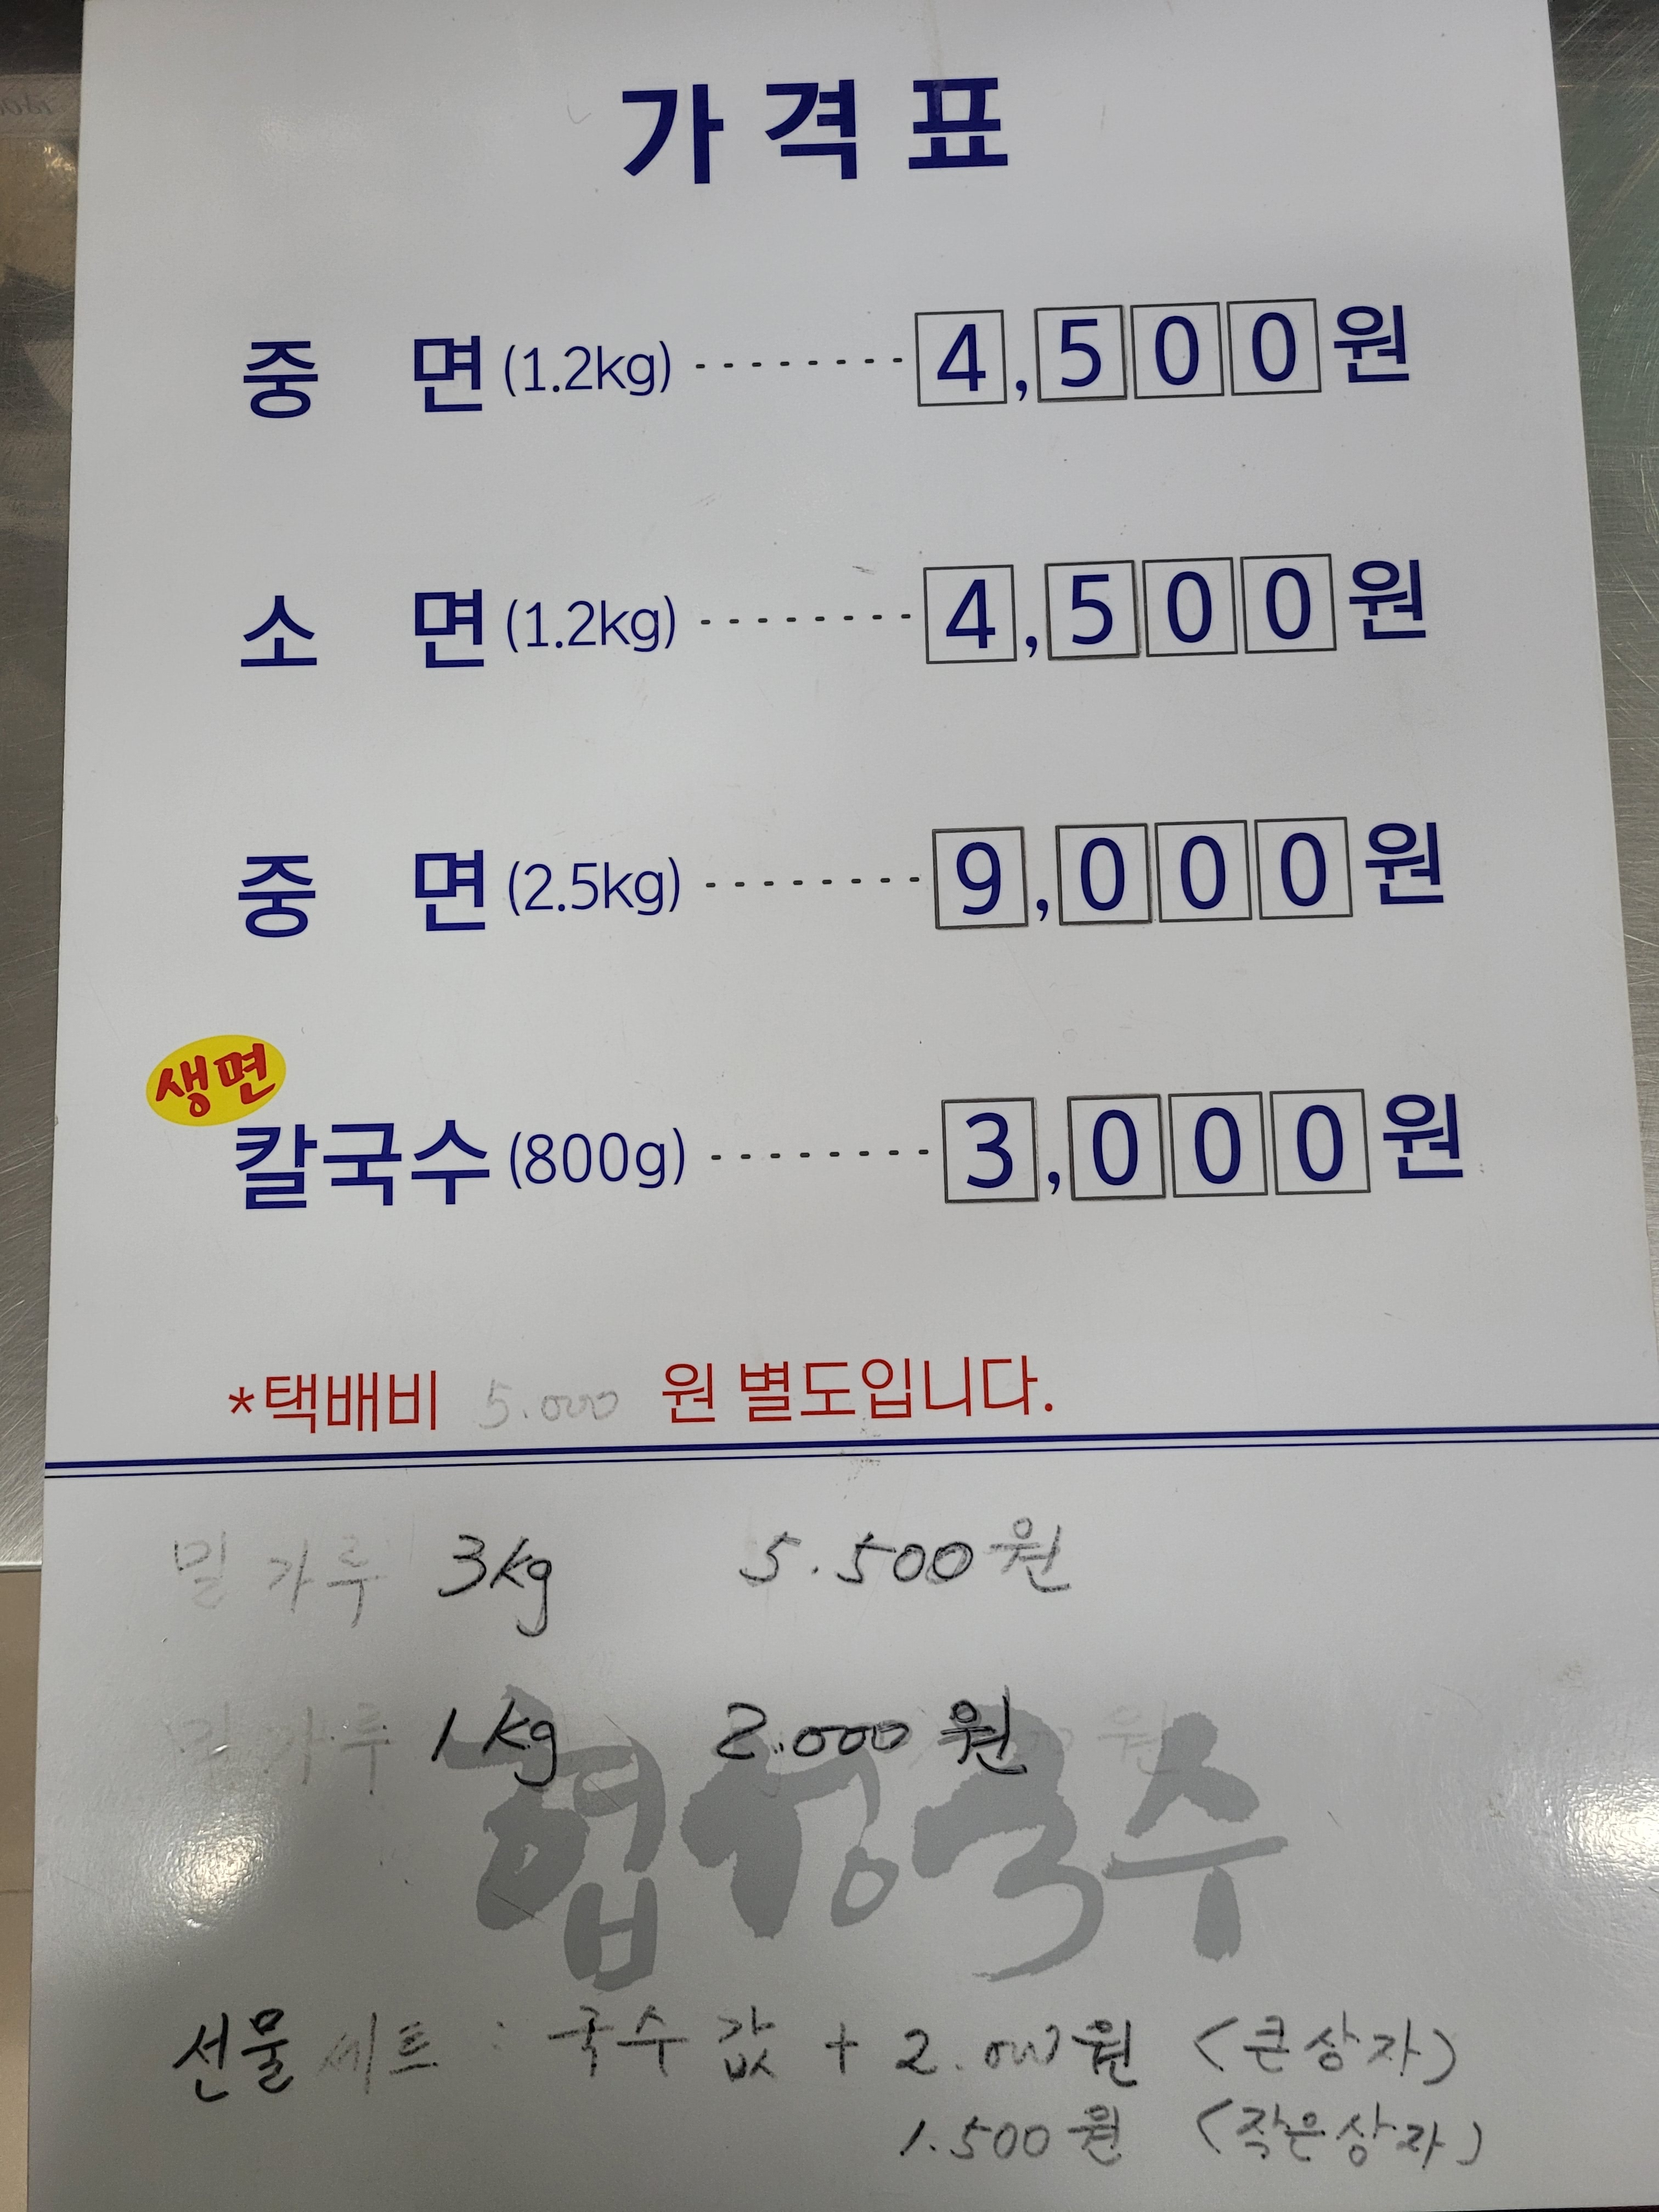 가격표
중 면 (1.2kg) -------- 4,500원
소 면 (1.2kg) -------- 4,500원
중 면 (2.5kg) -------- 9,000원
생면
칼국수 (800g) -------- 3,000원
*택배비 5.000 원 별도입니다.
밀가루 3kg 5.500원
밀가루 1kg 2.000원
협성국수
선물세트 : 국수값 + 2.000원 (큰상자)
1.500원 (작은상자)